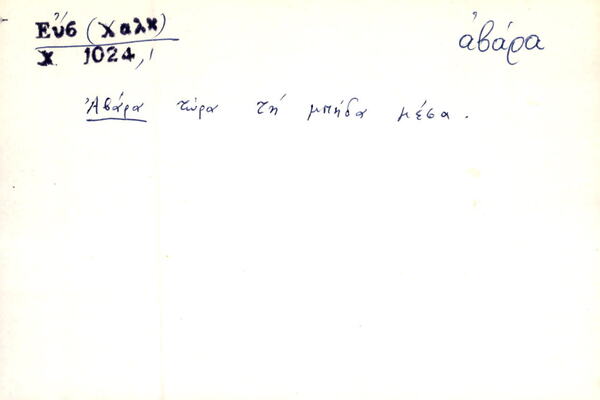 Εὔβ (Χαλκ)
χ. 1024,1
ἀβάρα
Ἀβάρα τώρα τή μπήδα μέσα.